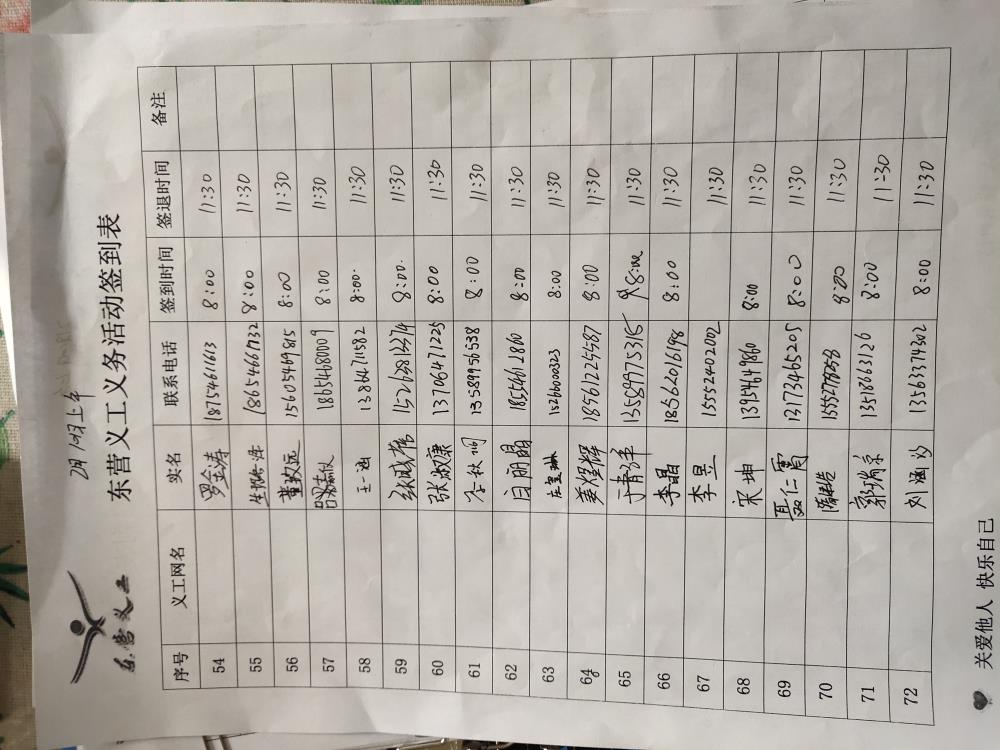 2月19日上午
东营义工
东营义工义务活动签到表
序号 义工网名 实名 联系电话 签到时间 签退时间 备注
54 罗金涛 18754461613 8:00 11:30
55 18654667132 8:00 11:30
56 董致远 15605469815 8:00 11:30
57 18654680009 8:00 11:30
58 王一涵 13864711582 8:00 11:30
59 8:00 11:30
60 张敏康 13706471225 8:00 11:30
61 13589956538 8:00 11:30
62 闫朋朋 18554612860 8:00 11:30
63 15266000323 8:00 11:30
64 姜煜辉 18561225587 8:00 11:30
65 于青洋 13589975315 8:00 11:30
66 李晶 18562016198 8:00 11:30
67 李昱 15552402002 11:30
68 宋坤 13954649860 8:00 11:30
69 聂仁霄 13173465205 8:00 11:30
70 8:00 11:30
71 郭瑞京 13518663126 8:00 11:30
72 13563374302 8:00 11:30
关爱他人 快乐自己